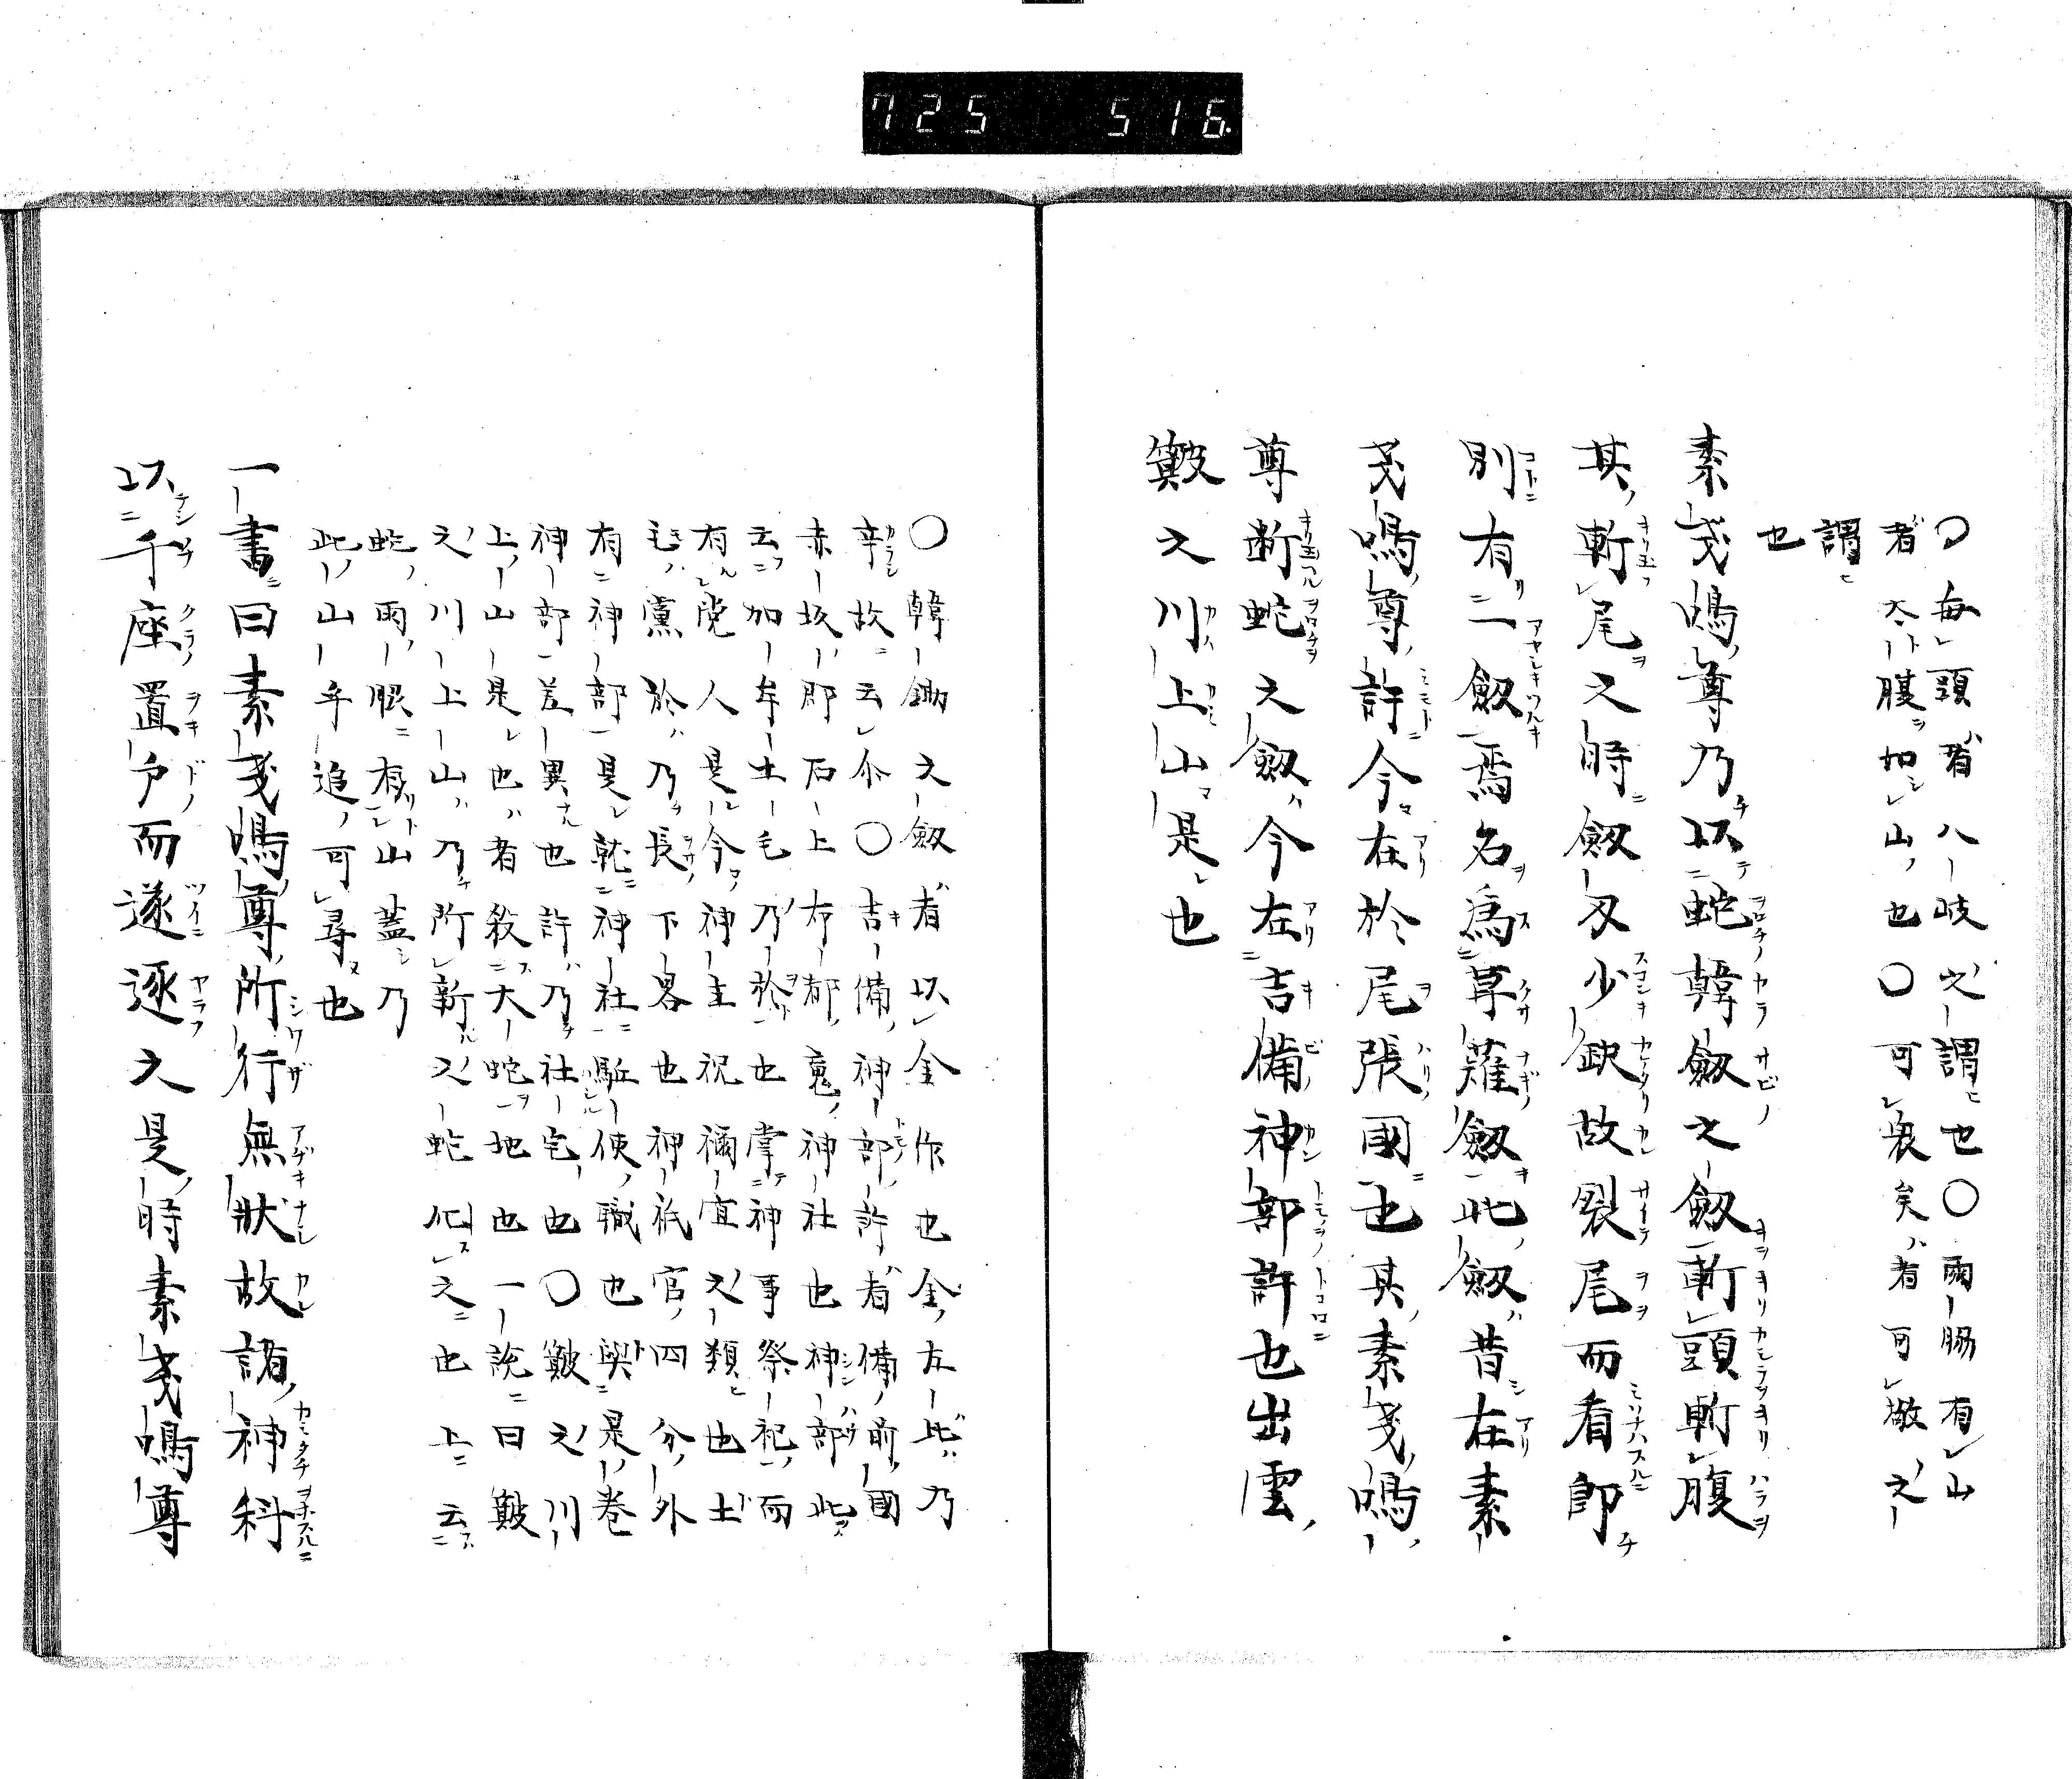 725 516
〇每頭者八岐之謂也〇兩脇有山
者太腹如山也〇可衰矣者可敬之
謂
也
素戔嗚尊乃以蛇韓劔之劔斬頭斬腹
其斬尾之時劔刃少缺故裂尾而看即
別有一劔焉名爲草薙劔此劔昔在素
戔嗚尊許今在於尾張國也其素戔嗚
尊断蛇之劔今在吉備神部許也出雲
簸之川上山是也
〇韓鋤之劔者以金作也金左此乃
辛故云尒〇吉備神部許者備前國
赤坂郡石上布都䰟神社也神部此
云加牟土毛乃於也掌神事祭祀而
有党人是今神主祝禰宜之類也土
毛黨於乃長下畧也神祇官四分外
有神部是就神社駈使職也與是卷
神部差異也許乃社宅也〇簸之川
上山是也者殺大蛇地也一說曰簸
之川上山乃所新之蛇化之也上云
蛇兩眼有山蓋乃
此山乎追可尋也
一書曰素戔嗚尊所行無狀故諸神科
以千座置戶而遂逐之是時素戔嗚尊